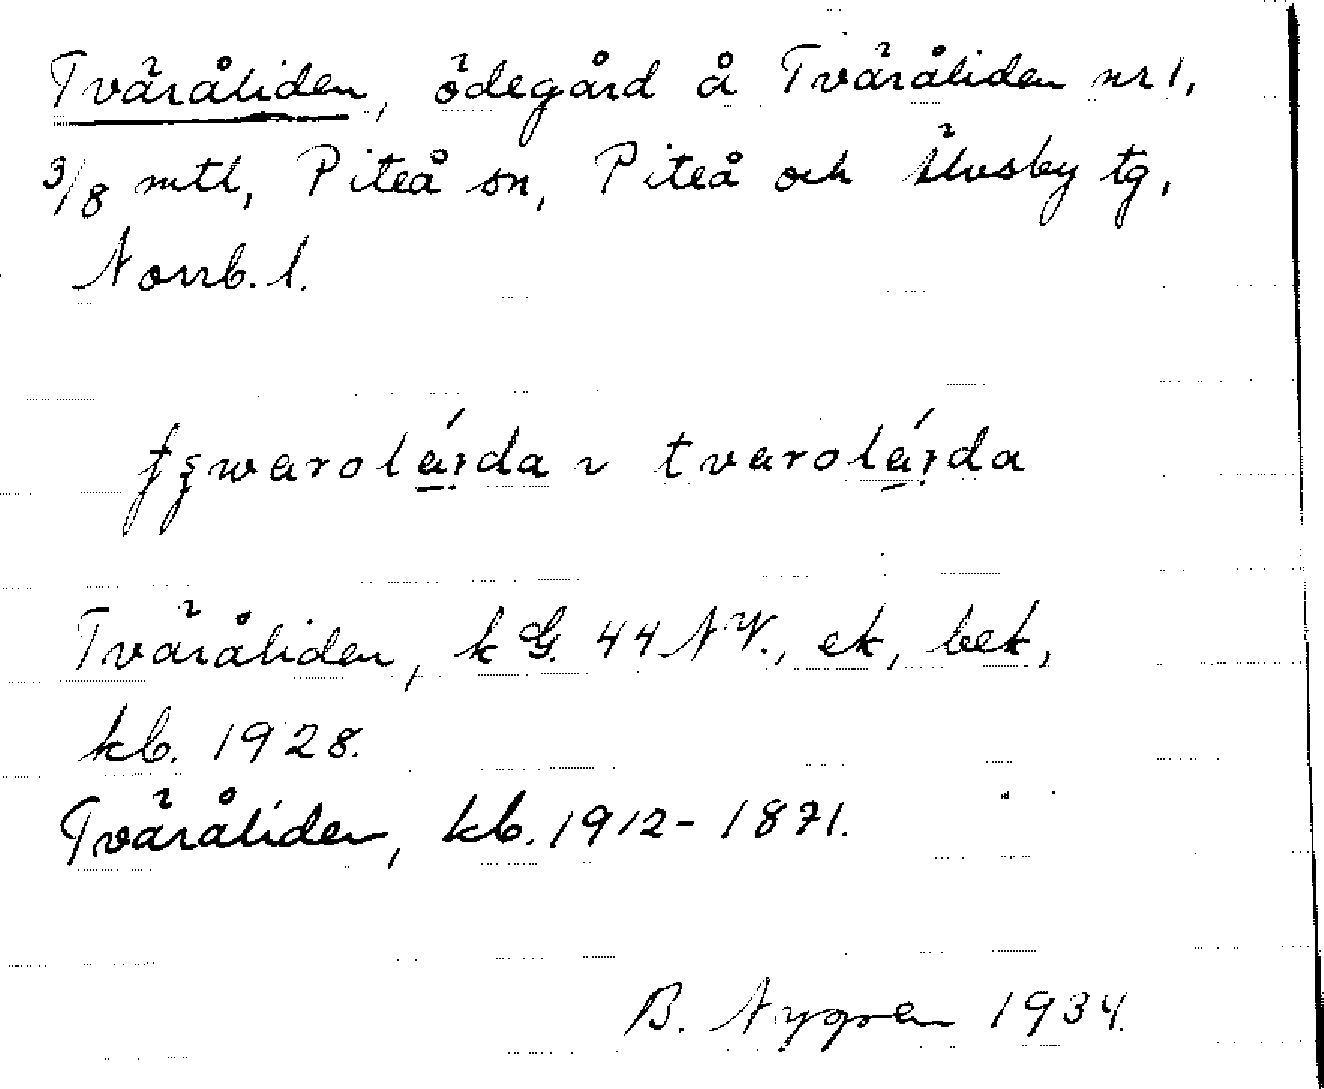 Tväråliden, ödegård å Tväråliden nr 1,
3/8 mtl, Piteå sn, Piteå och Älvsby tg,
Norrb. l.
tvarolá̱ı̣da
Tväråliden, k G. 44 NV., ek, bek,
kb. 1928.
Tväråliden, kb. 1912-1871.
B. Nygren 1934.